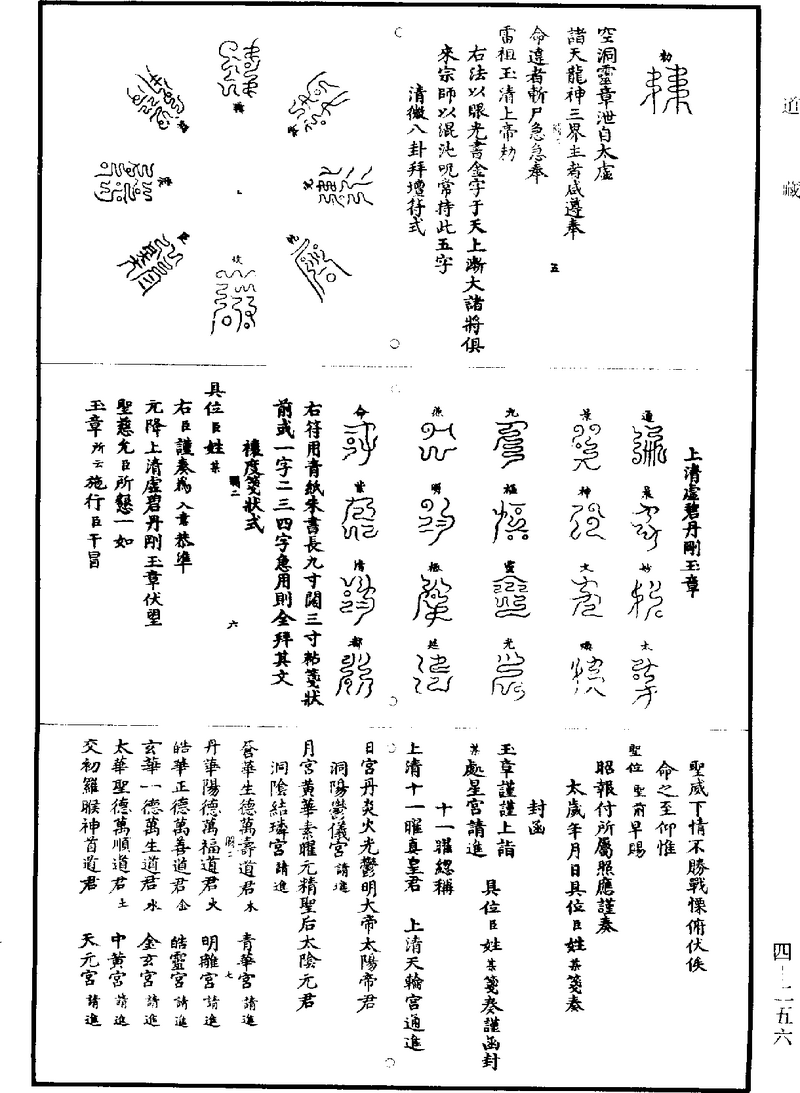 道藏
勑
空洞靈章泄自太虛
諸天龍神三界主者咸遵奉
命違者斬尸急急奉
雷祖玉清上帝勑
右法以眼光書金字于天上漸大諸將俱
來宗師以混沌呪常持此五字
清微八卦拜壇符式
坎
五
上清虛碧丹剛玉章
通 晨 妙 太
景 神 文 煥
九 極 靈 光
明 振 延
命 紫 清 都
右符用青紙朱書長九寸闊三寸帖箋狀
前或一字二三四字急用則全拜其文
禳度箋狀式
具位臣姓某
右臣謹奏爲入意恭準
元降上清虛碧丹剛玉章伏望
聖慈允臣所懇一如
玉章所云施行臣干冒
六
聖威下情不勝戰慄俯伏俟
命之至仰惟
聖位聖前早賜
昭報付所屬照應謹奏
太歲年月日具位臣姓某箋奏
封函
玉章謹謹上詣 具位臣姓某箋奏謹函封
某處星宮請進
十一曜總稱
上清十一曜真皇君 上清天輪宮通進
日宮丹炎火光鬱明大帝太陽帝君
洞陽鬱儀宮請進
月宮黃華素曜元精聖后太陰元君
洞陰結璘宮請進
蒼華生德萬壽道君木 青華宮請進
丹華陽德萬福道君火 明離宮請進
皓華正德萬善道君金 皓靈宮請進
玄華一德萬生道君水 金玄宮請進
太華聖德萬順道君土 中黃宮請進
交初羅睺神首道君 天元宮請進
七
四—二五六